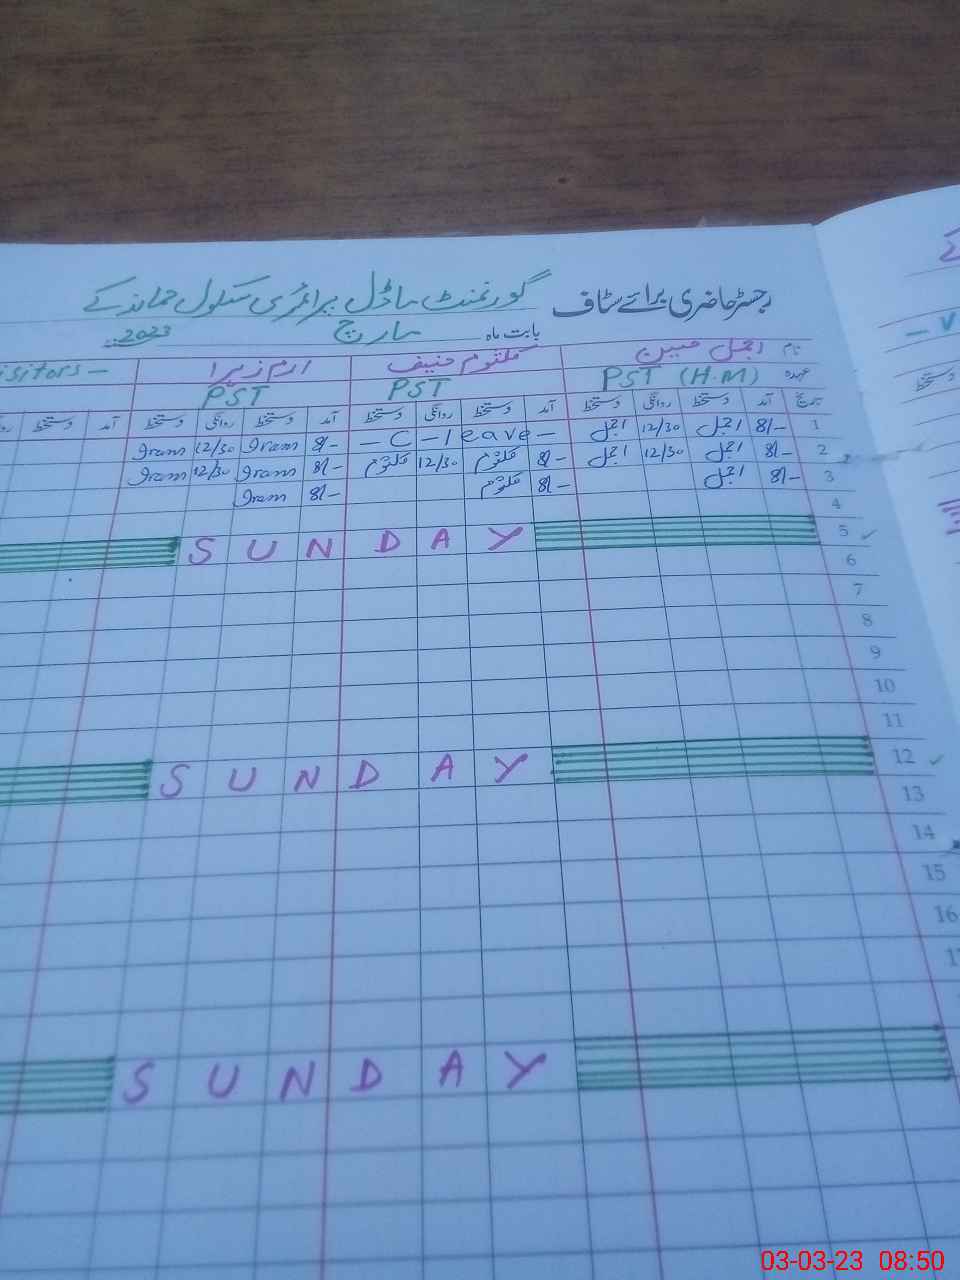 رجسٹر حاضری برائے سٹاف گورنمنٹ ماڈل پرائمری سکول
بابت ماہ مارچ 2023
نام اجمل مبین کلثوم حنیف ارم زہرا Visitors –
عہدہ PST (H.M) PST PST
تاریخ آمد دستخط روانگی دستخط آمد دستخط روانگی دستخط آمد دستخط روانگی دستخط آمد دستخط
1 8/- اجمل 12/30 اجمل – C – leave – 8/- Iram 12/30 Iram
2 8/- اجمل 12/30 اجمل 8/- کلثوم 12/30 کلثوم 8/- Iram 12/30 Iram
3 8/- اجمل 8/- کلثوم 8/- Iram
4
5 SUNDAY
6
7
8
9
10
11
12 SUNDAY
13
14
15
16
SUNDAY
03-03-23 08:50